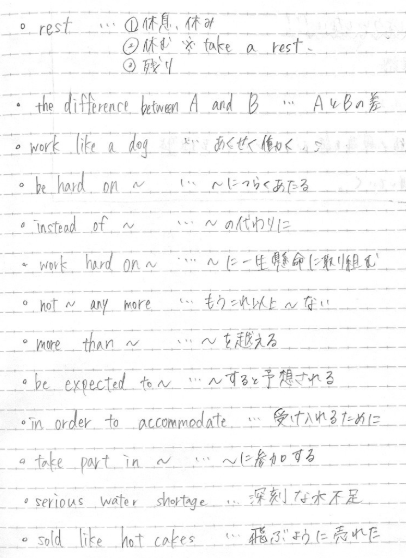 • rest … ① 休息、休み
② 休む ※ take a rest.
③ 残り
• the difference between A and B … AとBの差
• work like a dog … あくせく働く
• be hard on ~ … ~につらくあたる
• instead of ~ … ~の代わりに
• work hard on ~ … ~に一生懸命に取り組む
• not ~ any more … もうこれ以上~ない
• more than ~ … ~を越える
• be expected to ~ … ~すると予想される
• in order to accommodate … 受け入れるために
• take part in ~ … ~に参加する
• serious water shortage … 深刻な水不足
• sold like hot cakes … 飛ぶように売れた